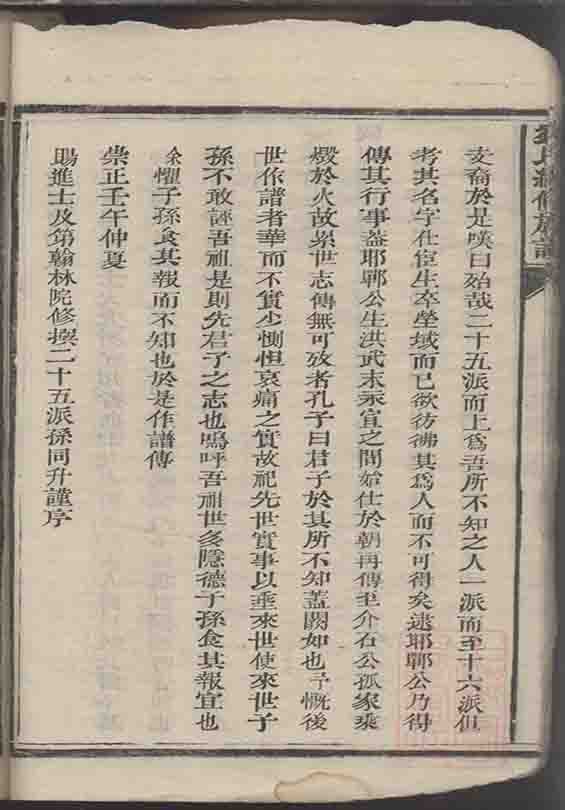 劉氏續修族譜
支裔於是嘆曰殆哉二十五派而上爲吾所不知之人一派而至十六派但
考其名字仕宦生卒塋域而已欲彷彿其爲人而不可得矣逮耶鄲公乃得
傳其行事葢耶鄲公生洪武末永宣之間始仕於朝再傳至介石公孤家乘
燬於火故累世志傳無可攷者孔子曰君子於其所不知葢闕如也予慨後
世依譜者華而不實少惻怛哀痛之實故祀先世實事以垂來世使來世子
孫不敢誣吾祖是則先君子之志也嗚呼吾祖世多隱德子孫食其報宜也
余懼子孫食其報而不知也於是作譜傳
崇正壬午仲夏
賜進士及第翰林院修撰二十五派孫同升謹序